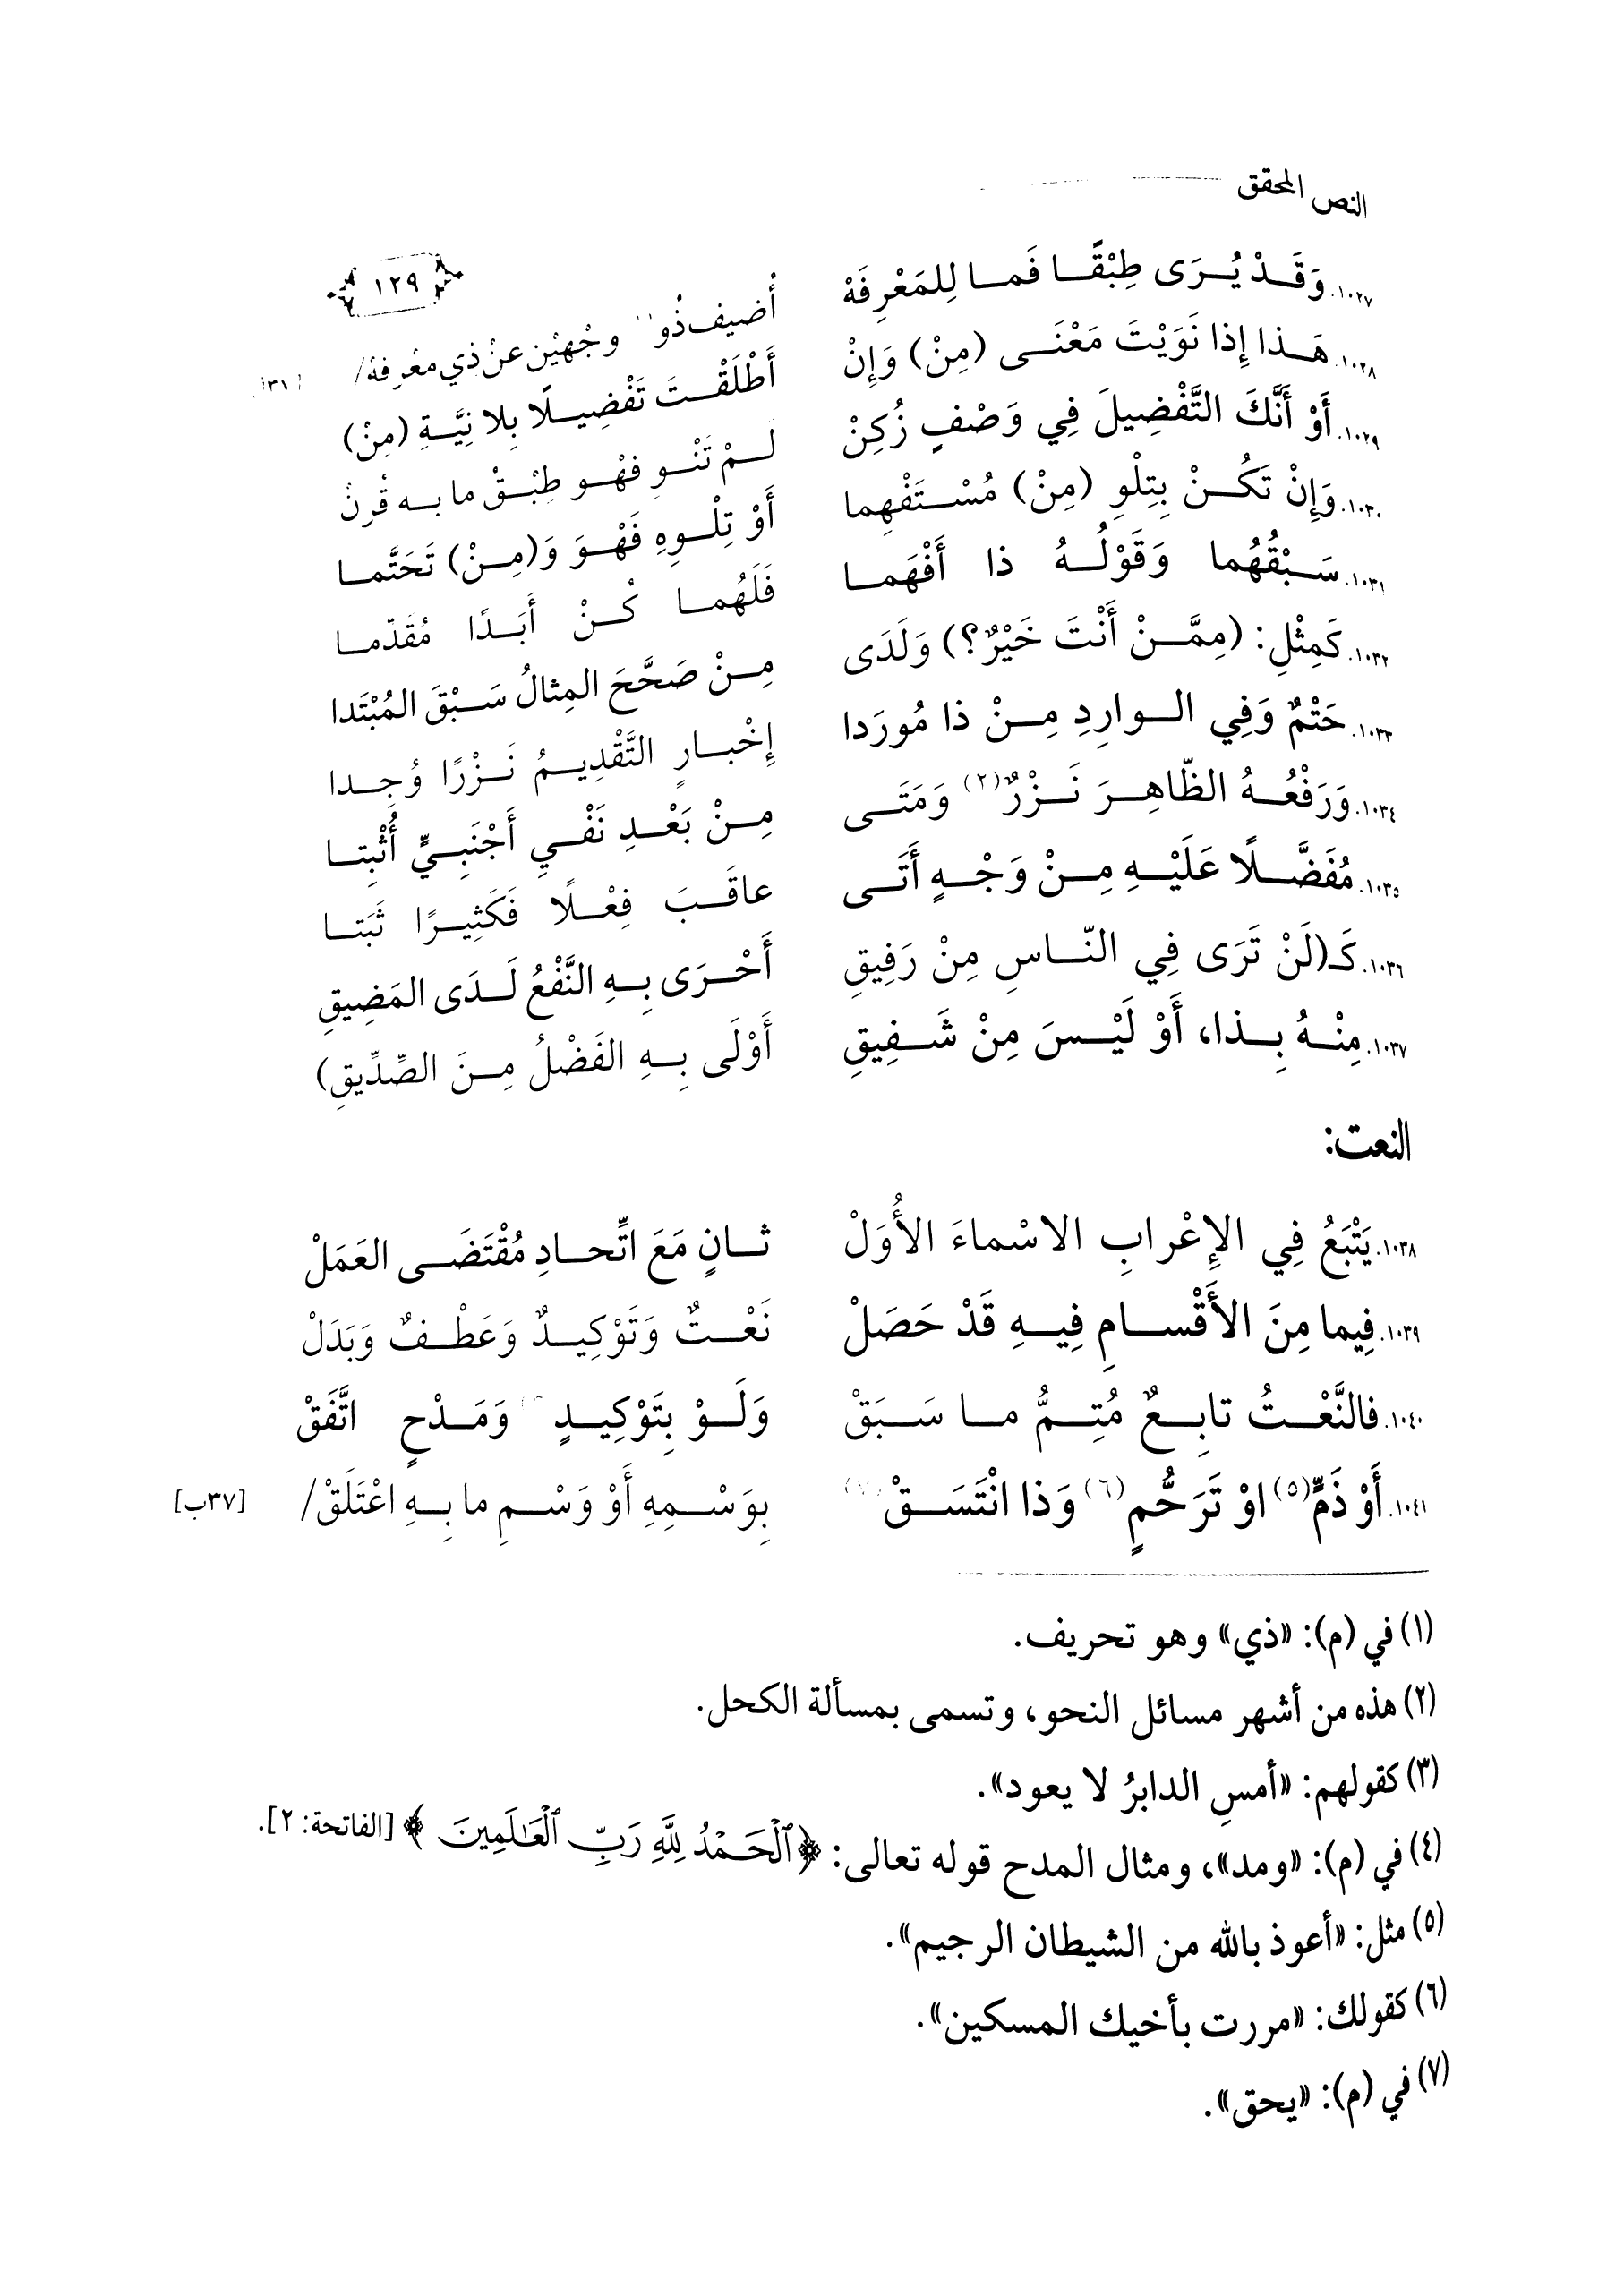 النص المحقق
١٢٩
١٠٢٧. وَقَـدْ يُـرَى طِبْقًـا فَمـا لِلمَعْرِفَهْ أُضيف ذُو وجْهيْن عنْ ذِي معْرِفهْ/
١٠٢٨. هَـذا إِذا نَوَيْتَ مَعْنَـى (مِنْ) وَإِنْ أَطْلَقْـتَ تَفْضِيـلًا بِلا نِيَّـةِ (مِنْ)
١٠٢٩. أَوْ أَنَّكَ التَّفْضِيلَ فِي وَصْفٍ زُكِنْ لَـمْ تَنْـوِ فهْـو طِبْـقْ ما بـه قُرِنْ
١٠٣٠. وَإِنْ تَكُـنْ بِتِلْوِ (مِنْ) مُسْـتَفْهِما أَوْ تِلْـوِهِ فَهْـوَ وَ(مِـنْ) تَحَتَّمـا
١٠٣١. سَـبْقُهُما وَقَوْلُـهُ ذا أَفْهَمـا فَلَهُمـا كُـنْ أَبَـدًا مُقَدّمـا
١٠٣٢. كَمِثْلِ: (مِمَّـنْ أَنْتَ خَيْرٌ؟) وَلَدَى مِـنْ صَحَّحَ المِثالُ سَـبْقَ المُبْتَدا
١٠٣٣. حَتْمٌ وَفِي الـوارِدِ مِـنْ ذا مُورَدا إِخْبـارٍ التَّقْدِيـمُ نَـزْرًا وُجِـدا
١٠٣٤. وَرَفْعُـهُ الظّاهِـرَ نَـزْرٌ(٢) وَمَتَـى مِـنْ بَعْـدِ نَفْـيٍ أَجْنَبِـيٍّ أُثْبِتـا
١٠٣٥. مُفَضَّـلًا عَلَيْـهِ مِـنْ وَجْـهٍ أَتَـى عاقَـبَ فِعْـلًا فَكَثِيـرًا ثَبَتـا
١٠٣٦. كَـ(لَنْ تَرَى فِي النّـاسِ مِنْ رَفِيقِ أَحْـرَى بِـهِ النَّفْعُ لَـدَى المَضِيقِ
١٠٣٧. مِنْـهُ بِـذا، أَوْ لَيْـسَ مِنْ شَـفِيقِ أَوْلَى بِـهِ الفَضْلُ مِـنَ الصِّدِّيقِ)
النعت:
١٠٣٨. يَتْبَعُ فِي الإِعْرابِ الاسْماءَ الأُوَلْ ثـانٍ مَعَ اتِّحـادِ مُقْتَضَـى العَمَلْ
١٠٣٩. فِيما مِنَ الأَقْسـامِ فِيـهِ قَدْ حَصَلْ نَعْـتٌ وَتَوْكِيـدٌ وَعَطْـفٌ وَبَدَلْ
١٠٤٠. فالنَّعْـتُ تابِـعٌ مُتِـمُّ مـا سَـبَقْ وَلَـوْ بِتَوْكِيـدٍ وَمَـدْحٍ اتَّفَقْ
١٠٤١. أَوْ ذَمٍّ(٥) اوْ تَرَحُّمٍ(٦) وَذا انْتَسَـقْ بِوَسْـمِهِ أَوْ وَسْـمِ ما بِـهِ اعْتَلَقْ/ [٣٧ب]
(١) في (م): «ذي» وهو تحريف.
(٢) هذه من أشهر مسائل النحو، وتسمى بمسألة الكحل.
(٣) كقولهم: «أمسِ الدابرُ لا يعود».
(٤) في (م): «ومد»، ومثال المدح قوله تعالى: ﴿ٱلۡحَمۡدُ لِلَّهِ رَبِّ ٱلۡعَٰلَمِينَ﴾ [الفاتحة: ٢].
(٥) مثل: «أعوذ بالله من الشيطان الرجيم».
(٦) كقولك: «مررت بأخيك المسكين».
(٧) في (م): «يحق».